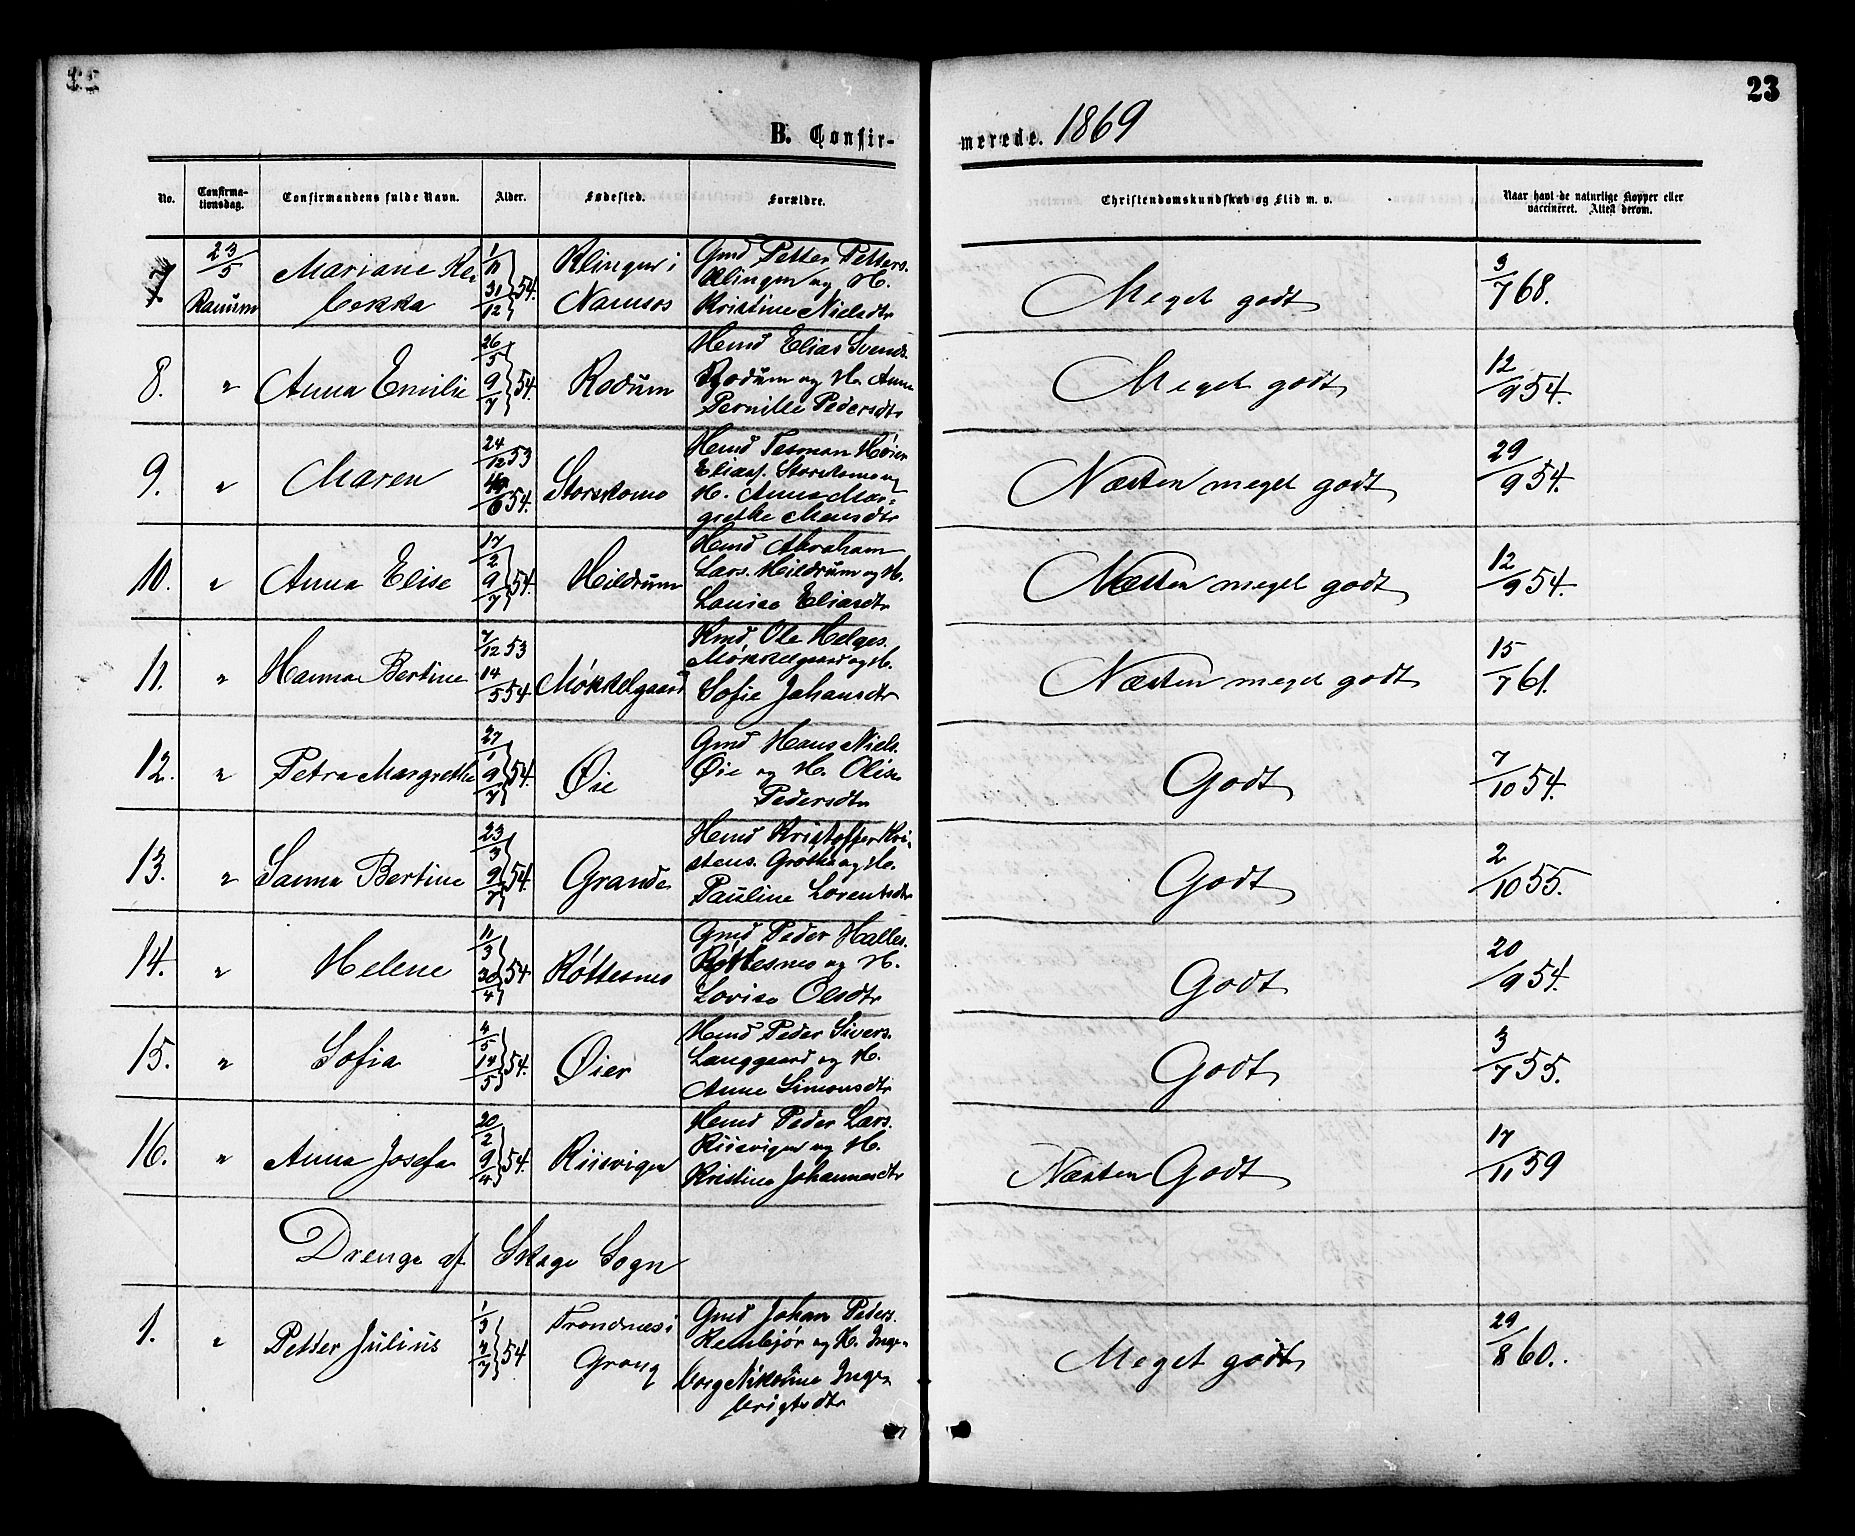 23
B. Confir-
merede. 1869
No.
Confirma-
tionsdag.
Confirmandens fulde Navn.
Alder.
Fødested.
Forældre.
Christendomskundskab og Flid m. v.
Naar havt de naturlige Kopper eller
vaccineret. Attest derom.
7
23/5
Ranum
Mariane Re-
bekka
1/11 31/12 } 54.
Klingen i
Namsos
Gmd Petter Petters.
Klingen og H.
Kristine Nielsdtr
Meget godt
3/7 68.
8. " Anna Emilie
26/5 9/7 } 54.
Rodum
Hmd Elias Svends.
Rodum og H. Anne
Pernille Pedersdtr
Meget godt
12/9 54.
9. " Maren
24/12 53
/6 54.
Storskomo
Hmd Tesman Høier
Eliass. Storskomo og
H. Anna Mar-
grethe Monsdtr
Næsten meget godt
29/9 54.
10. " Anna Elise
17/2 9/7 } 54.
Hildrum
Hmd Abraham
Lars. Hildrum og H.
Louise Eliasdtr
Næsten meget godt
12/9 54.
11. " Hanna Bertine
7/12 53
14/5 54.
Møkkelgaard
Kmd. Ole Helges.
Møkkelgaard og H.
Sofie Johansdtr
Næsten meget godt
15/7 61.
12. " Petra Margrethe
27/1 9/7 } 54.
Øie
Gmd Hans Niels.
Øie og H. Olise
Pedersdtr
Godt
7/10 54.
13. " Sanna Bertine
23/3 9/7 } 54.
Grande
Hmd Kristoffer Kri-
stens. Grøtte og H.
Pauline Lorentsdtr
Godt
2/10 55.
14. " Helene
11/3 30/4 } 54
Røttesnes
Gmd Peder Halles.
Røttesnes og H.
Lovise Olsdtr
Godt
20/9 54.
15. " Sofia
4/5 14/5 } 54.
Øier
Hmd Peder Sivers.
Langgaard og H.
Anne Simonsdtr
Godt
3/7 55.
16. " Anna Josefa
20/2 9/4 } 54.
Riisvigen
Hmd Peder Lars.
Riisvigen og H.
Kristine Johannesdtr
Næsten Godt
17/11 59
Drenge af Skage Sogn
1. " Petter Julius
1/3 4/7 } 54
Trondnæs i
Grong
Gmd Johan Peders.
Rembjør og H. Inge-
borg Nikoline Inge-
brigtsdtr
Meget godt
29/8 60.